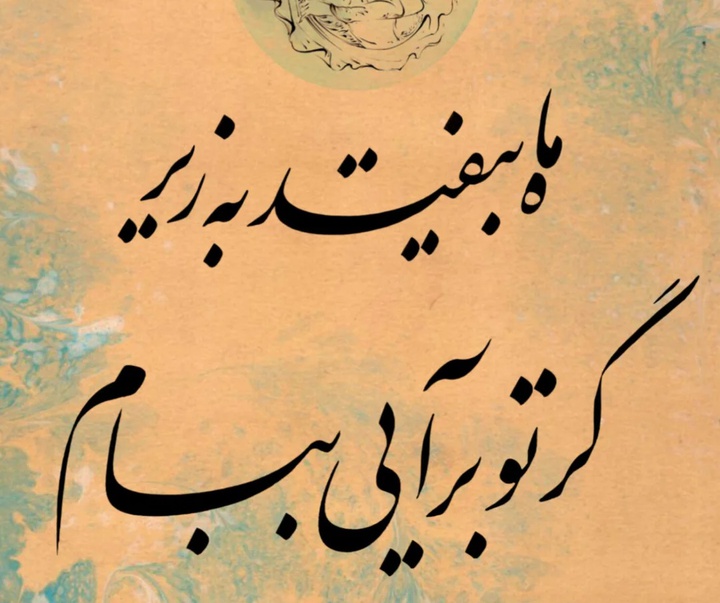 ماه بیفتد به زیر
گر تو برآیی ببام